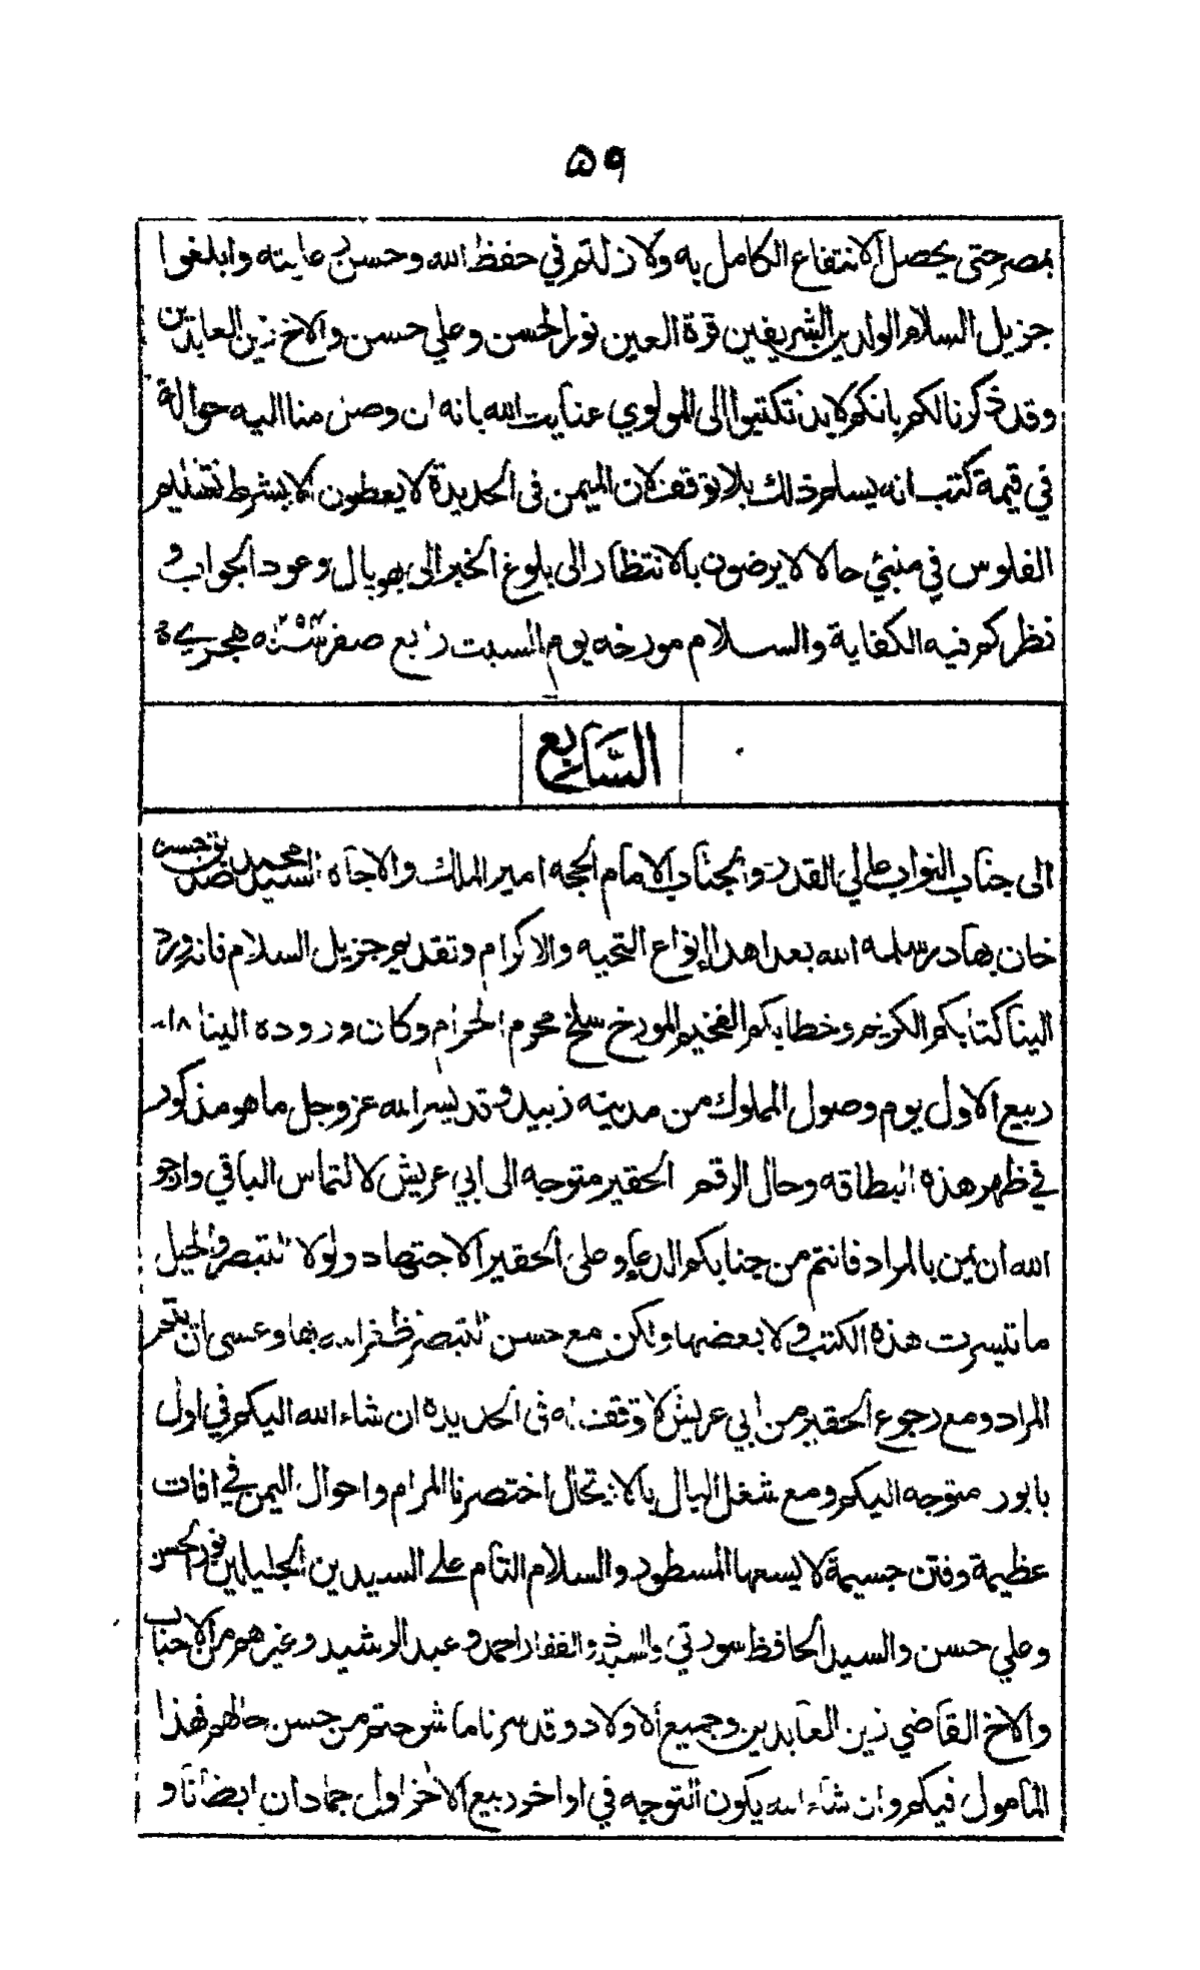 ۵۹
بمصر حتى يحصل الانتفاع الكامل به ولا زلتم في حفظ الله وحسن رعايته وابلغوا
جزيل السلام الولدين الشريفين قرة العين نور الحسن وعلي حسن والاخ زين العابدين
وقد ذكرنا لكم بانكم لابد تكتبوا الى المولوي عنايت الله بانه ان وصل منا اليه حوالة
في قيمة كتب انه يسلم ذلك بلا توقف لان اليمن في الحديدة لا يعطون الا بشرط تسليم
الفلوس في منبئي حالا لا يرضون بالانتظار الى بلوغ الخبر الى بهوپال وعود الجواب و
نظركم فيه الكفاية والسلام مورخه يوم السبت رابع صفر سنه هجري
السابع
الى جناب النواب عالي القدر والجناب الامام الحجه امير الملك والاجاه السيد محمد صديق حسن
خان بهادر سلمه الله بعد اهدا انواع التحيه والاكرام وتقديم جزيل السلام فانه ورد
الينا كتابكم الكريم وخطابكم الفخيم المورخ سلخ محرم الحرام وكان وروده الينا ۱۸
ربيع الاول يوم وصول المملوك من مدينه زبيد وقد يسر الله عز وجل ما هو مذكور
في ظهر هذه البطاقه وحال الرقم الحقير متوجه الى ابي عريش لالتماس الباقي وارجو
الله ان يمن بالمراد فانتم من جنابكم الدعاء وعلى الحقير الاجتهاد ولولا التبصر والحيل
ما تيسرت هذه الكتب ولا بعضها ولكن مع حسن التبصر ظفر الله بها وعسى ان يتحر
المراد ومع رجوع الحقير من ابي عريش لا وقفه في الحديده ان شاء الله اليكم في اول
بابور متوجه اليكم ومع شغل البال بالارتحال اختصرنا المرام واحوال اليمن في افات
عظيمة وفتن جسيمة لا يسعها المسطور والسلام التام على السيدين الجليلين نور الحسن
وعلي حسن والسيد الحافظ سورتي والسيد ذو الفقار احمد وعبد الرشيد وغيرهم من الاحباب
والاخ القاضي زين العابدين وجميع الاولاد وقد سرنا ما شرحتم من حسن حالهم فهذا
المامول فيكم وان شاء الله يكون التوجه في اواخر ربيع الاخر اول جمادان ايضا و